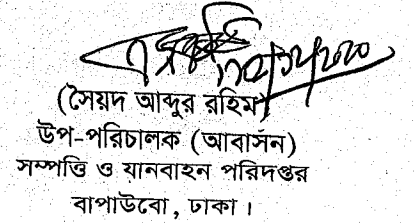 (সৈয়দ আব্দুর রহিম)
উপ-পরিচালক (আবার্সন)
সম্পত্তি ও যানবাহন পরিদপ্তর
বাপাউবো, ঢাকা।